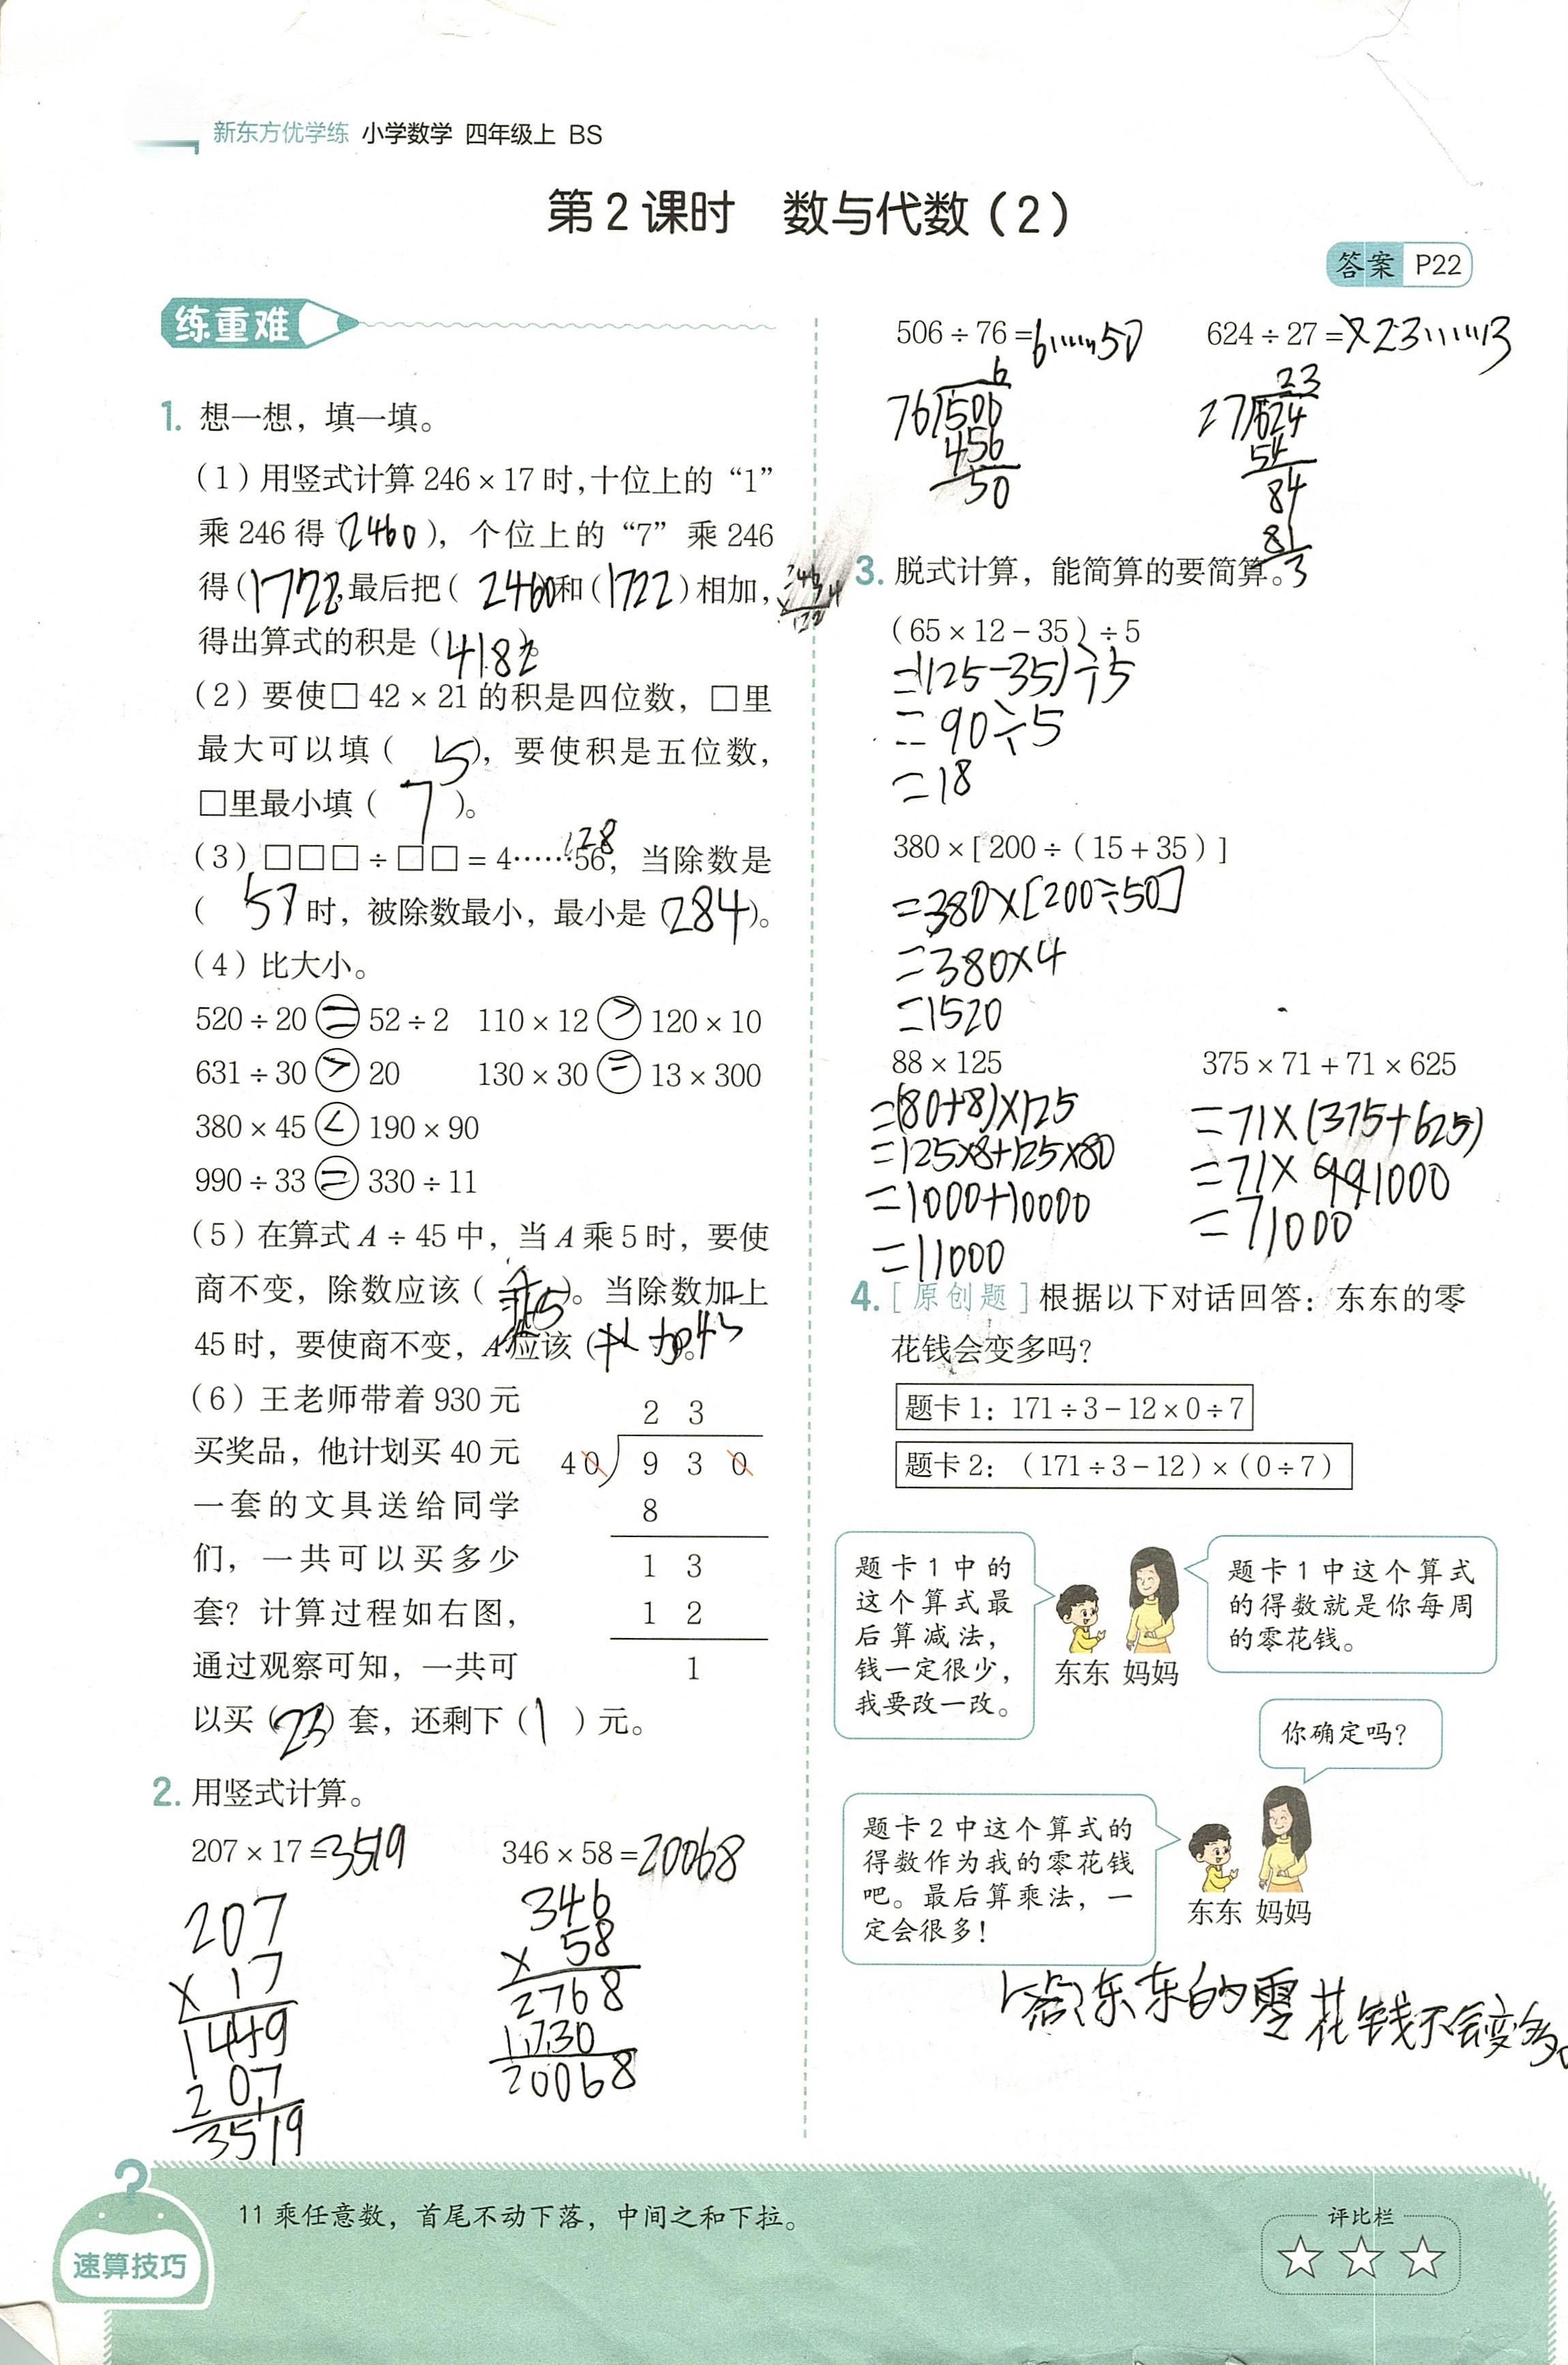 新东方优学练 小学数学 四年级上 BS
第2课时 数与代数(2)
答案 P22
练重难
1. 想一想，填一填。
(1)用竖式计算246×17时,十位上的“1”
乘246得(2460)，个位上的“7”乘246
得(1722),最后把(2460和(1722)相加，
得出算式的积是(4182)。
(2)要使□42×21的积是四位数，□里
最大可以填(5)，要使积是五位数，
□里最小填(7)。
128
(3)□□□÷□□=4……56，当除数是
(57时，被除数最小，最小是(284)。
(4)比大小。
520÷20=52÷2 110×12>120×10
631÷30>20 130×30=13×300
380×45<190×90
990÷33=330÷11
(5)在算式A÷45中，当A乘5时，要使
商不变，除数应该(乘5)。当除数加上
45时，要使商不变，A应该(
(6)王老师带着930元
买奖品，他计划买40元
一套的文具送给同学
们，一共可以买多少
套？计算过程如右图，
通过观察可知，一共可
以买(23)套，还剩下(1)元。
2 3
40 9 3 0
8
1 3
1 2
1
2. 用竖式计算。
207×17=3519 346×58=20068
207
×17
1449
207
3519
346
×58
2768
1730
20068
506÷76=6……50 624÷27=23……3
6
76 506
456
50
23
27 624
54
84
81
3
3. 脱式计算，能简算的要简算。
(65×12-35)÷5
=(125-35)÷5
=90÷5
=18
380×[200÷(15+35)]
=380×[200÷50]
=380×4
=1520
88×125
=(80+8)×125
=125×8+125×80
=1000+10000
=11000
375×71+71×625
=71×(375+625)
=71×1000
=71000
4. [原创题]根据以下对话回答：东东的零
花钱会变多吗？
题卡1：171÷3-12×0÷7
题卡2：(171÷3-12)×(0÷7)
题卡1中的
这个算式最
后算减法，
钱一定很少，
我要改一改。
东东 妈妈
题卡1中这个算式
的得数就是你每周
的零花钱。
你确定吗？
题卡2中这个算式的
得数作为我的零花钱
吧。最后算乘法，一
定会很多！
东东 妈妈
答:东东的零花钱不会变多。
速算技巧
11乘任意数，首尾不动下落，中间之和下拉。
评比栏